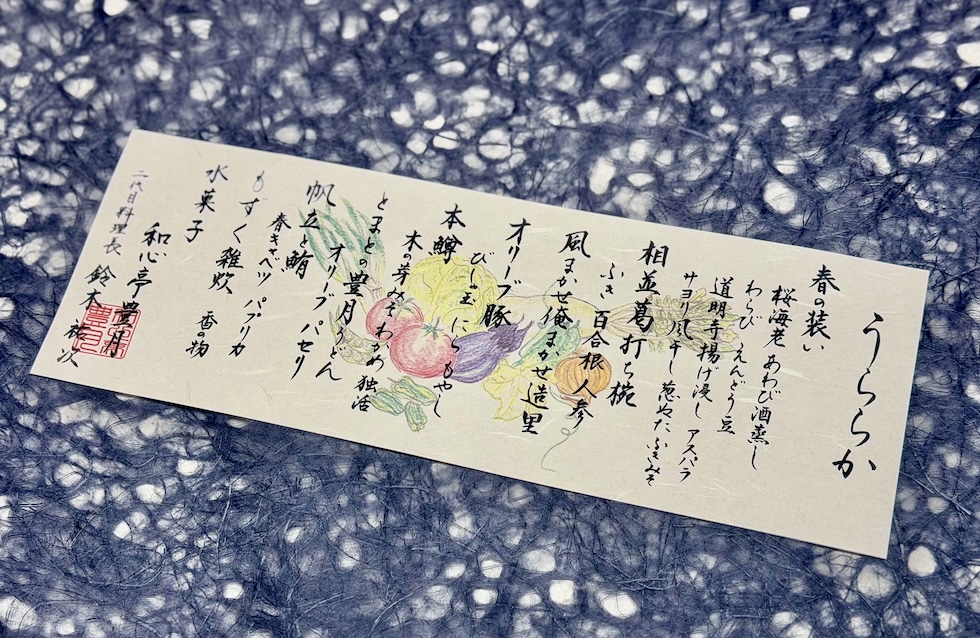 うららか
春の装い
桜海老 あわび酒蒸し
わらび えんどう豆
道明寺揚げ浸し アスパラ
サヨリ風干し 葱ぬた ふきみそ
相並葛打ち椀
ふき 百合根 人参
風まかせ俺まかせ造里
オリーブ豚
びー玉 にら もやし
本鱒
木の芽みそ わかめ 独活
とまとの豊月うどん
オリーブ パセリ
帆立と鮪
春きゃべつ パプリカ
もずく雑炊 香の物
水菓子
和心亭 豊月
二代目料理長 鈴木 祐次